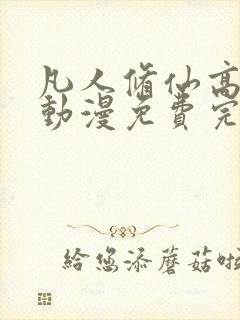 凡人脩仙高
動漫免費完
給您添蘑菇啦